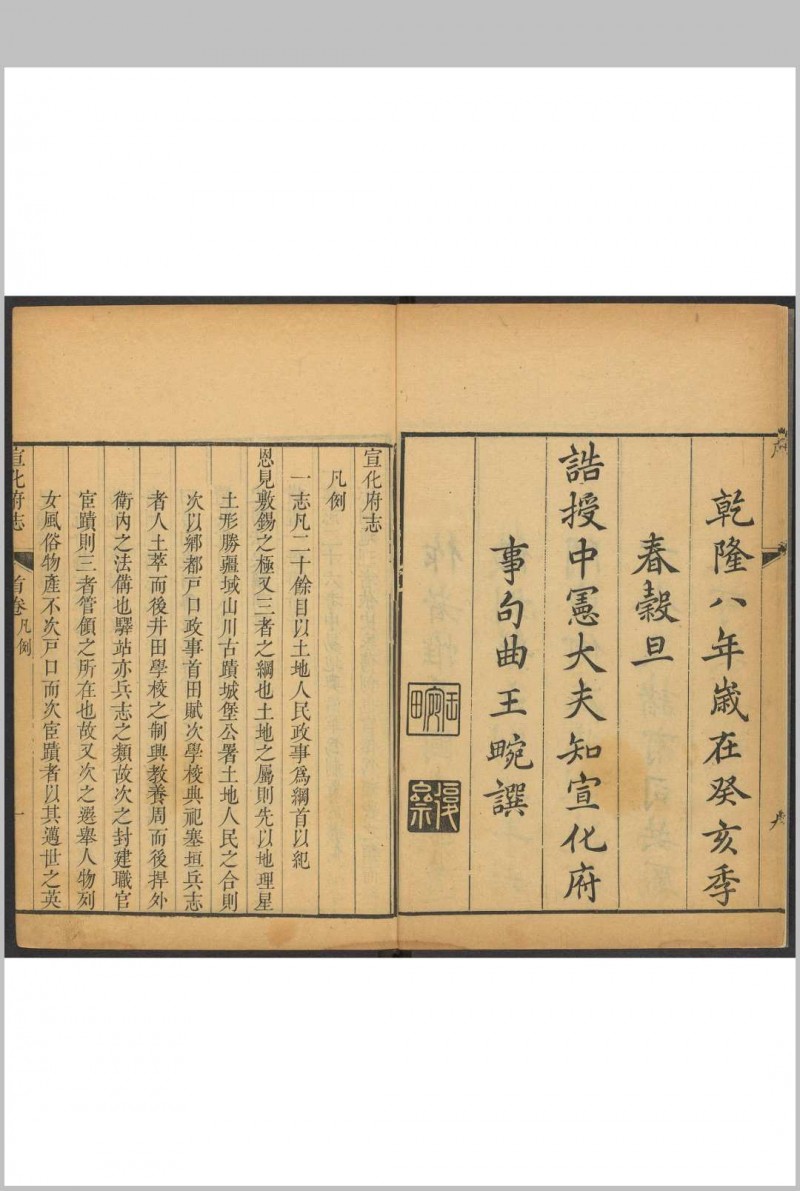 乾隆八年歲在癸亥季
春穀旦
誥授中憲大夫知宣化府
事句曲王畹譔
宣化府志
凡例
一志凡二十餘目以土地人民政事爲綱首以紀
恩見敷錫之極又三者之綱也土地之屬則先以地理星
土形勝疆域山川古蹟城堡公署土地人民之合則
次以鄉都戸口政事首田賦次學校典祀塞垣兵志
者人土萃而後井田學校之制興教養周而後捍外
衛內之法備也驛站亦兵志之類故次之封建職官
宦蹟則三者管領之所在也故又次之選舉人物列
女風俗物產不次戸口而次宦蹟者以其邁世之英
宣化府志
首卷
凡例
一